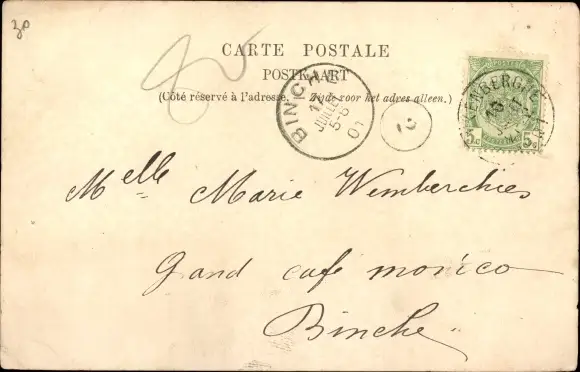 30
CARTE POSTALE
POSTKAART
(Côté réservé à l'adresse. — Zijde voor het adres alleen.)
BINCHE
JUILLET
5-6
01
5c 5c
Melle Marie Wemberchies
Grand café monico
Binche